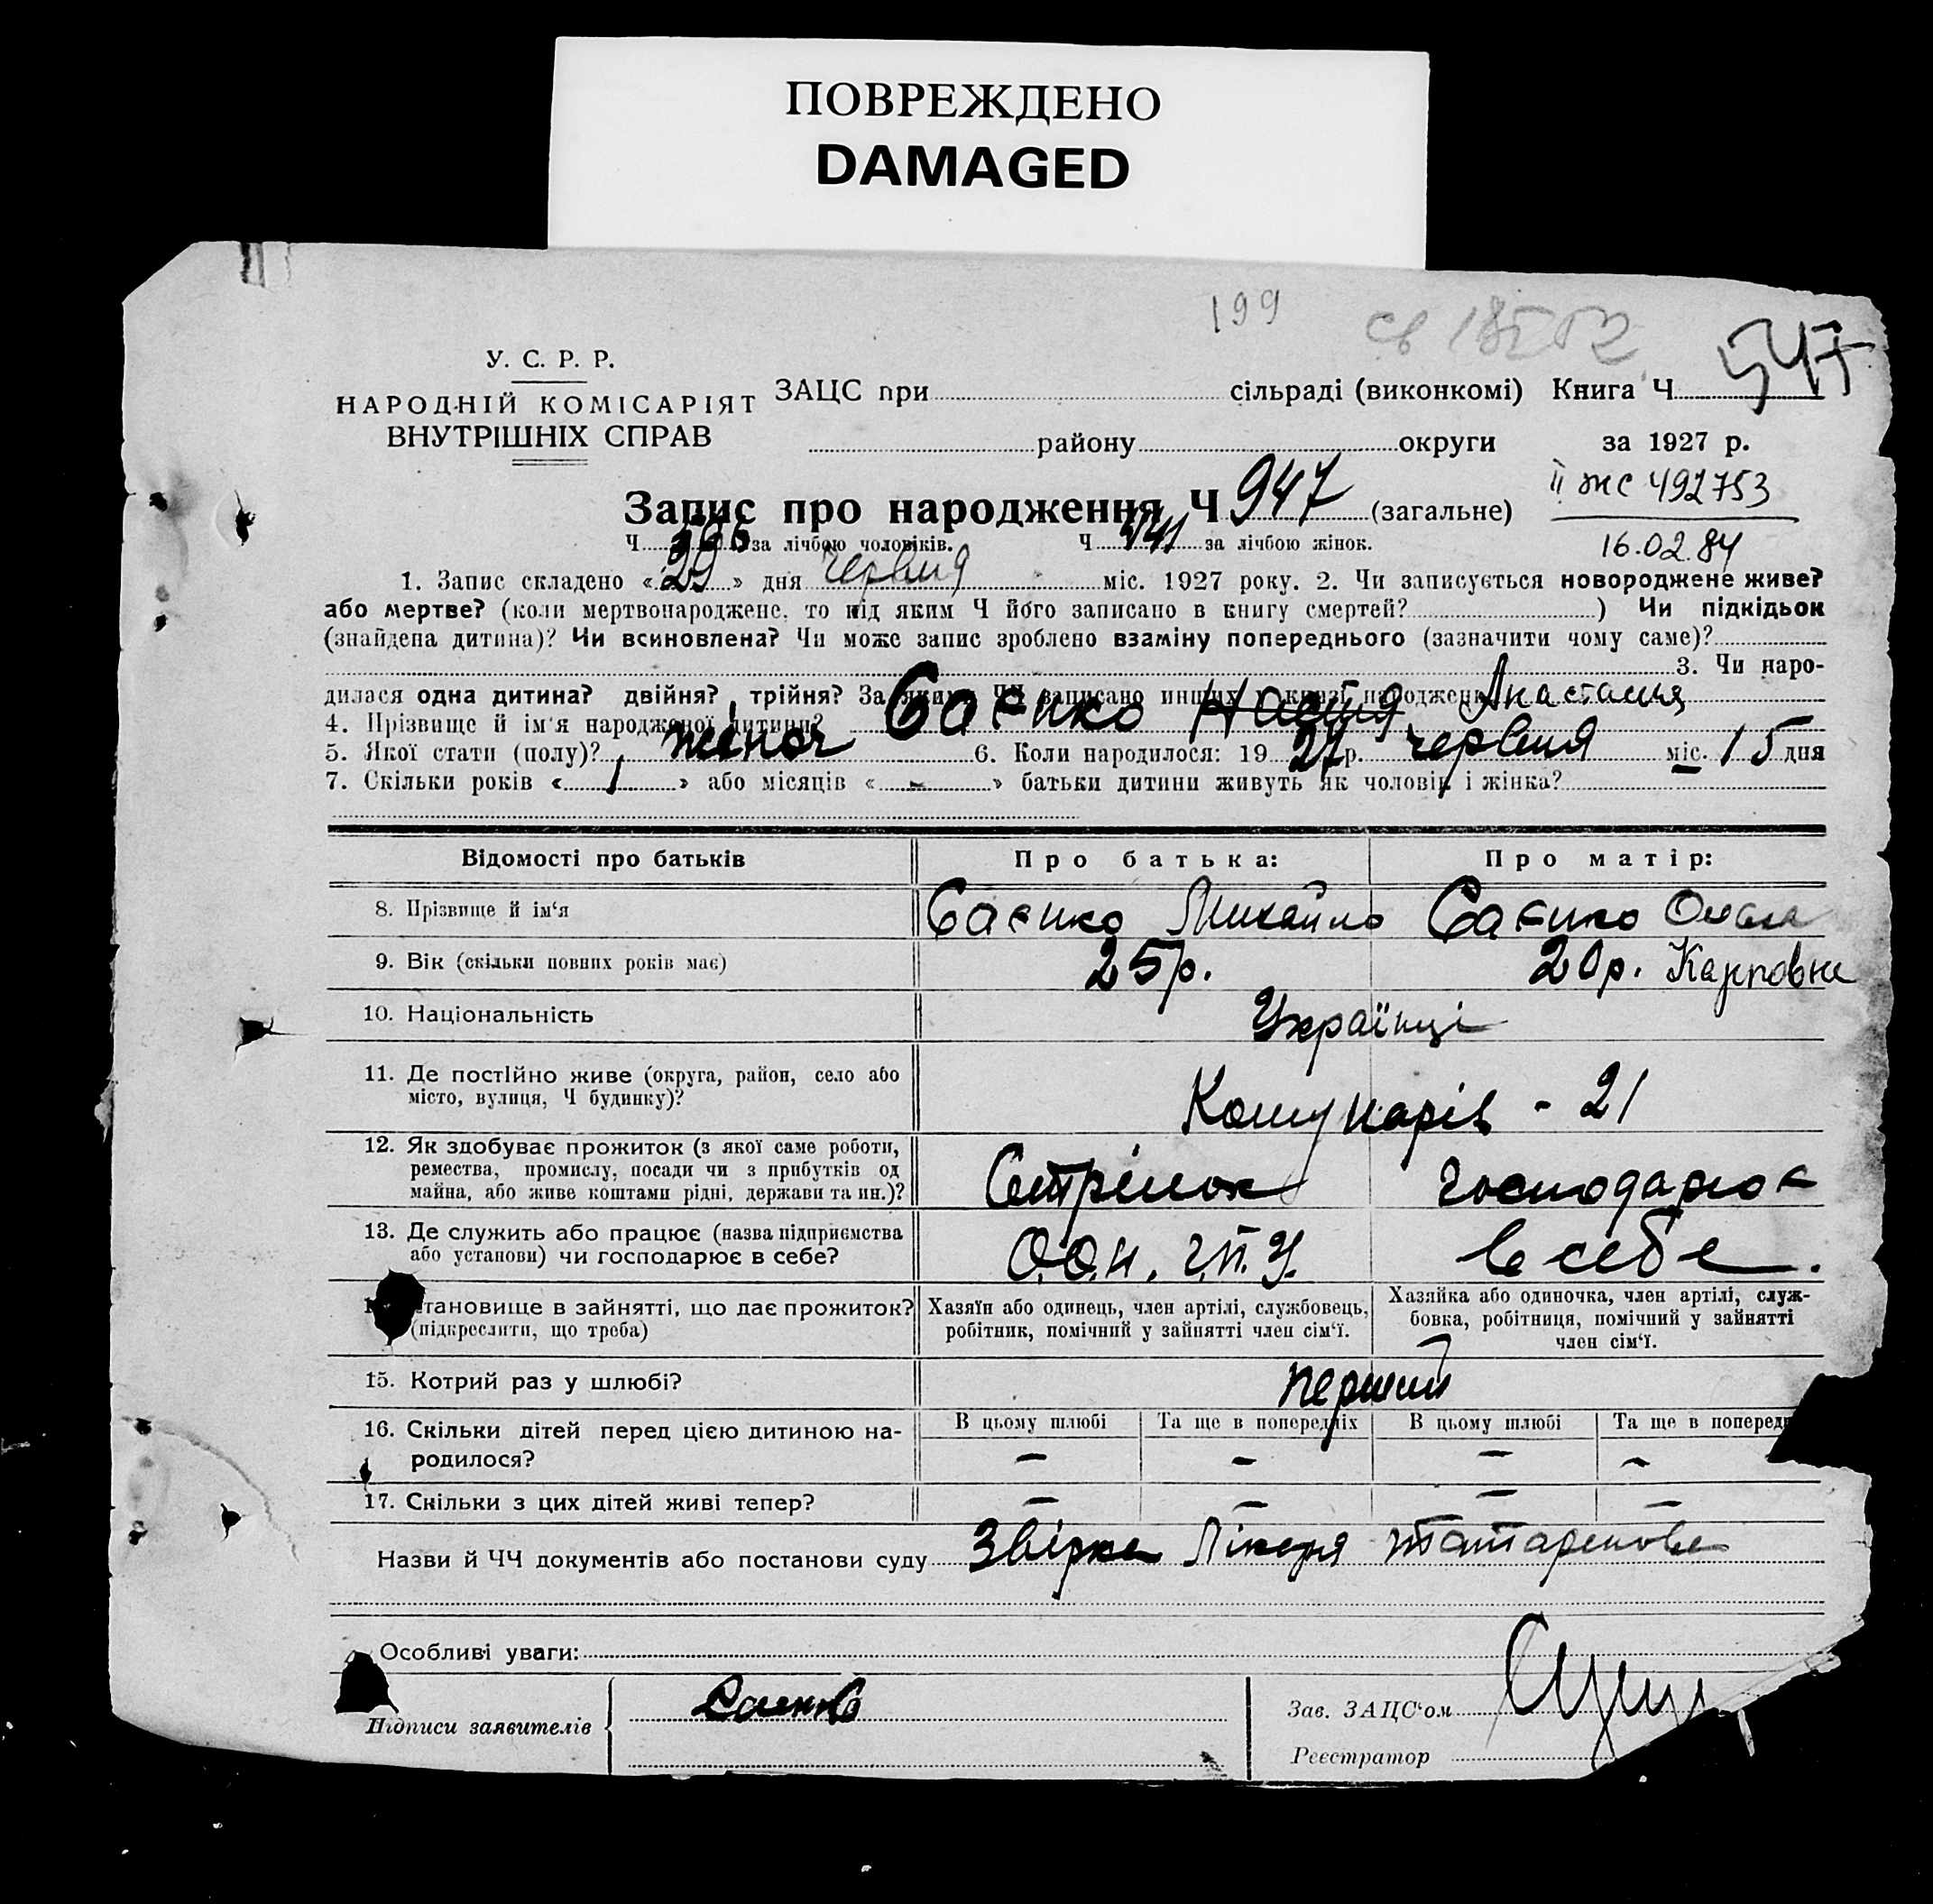 ПОВРЕЖДЕНО
DAMAGED
199
547
У. С. Р. Р.
НАРОДНІЙ КОМІСАРІЯТ
ВНУТРІШНІХ СПРАВ
ЗАЦС при сільраді (виконкомі) Книга Ч
району округи за 1927 р.
II ЖС 492753
16.02.84
Запис про народження Ч 947 (загальне)
Ч за лічбою чоловіків. Ч 441 за лічбою жінок.
1. Запис складено «29» дня червня міс. 1927 року. 2. Чи записується новороджене живе?
або мертве? (коли мертвонароджене, то під яким Ч його записано в книгу смертей? ) Чи підкідьок
(знайдена дитина)? Чи всиновлена? Чи може запис зроблено взаміну попереднього (зазначити чому саме)?
3. Чи наро-
дилася одна дитина? двійня? трійня? За якими ЧЧ записано инших у книзі народжень
4. Прізвище й ім'я народженої дитини? Саєнко Настя Анастасия
5. Якої стати (полу)? жіноч 6. Коли народилося: 1927 р. червня міс. 15 дня
7. Скільки років «1» або місяців «-» батьки дитини живуть як чоловік і жінка?
Відомості про батьків Про батька: Про матір:
8. Прізвище й ім'я Саєнко Михайло Саєнко
9. Вік (скільки повних років має) 25р. 20р. Карповна
10. Національність Українці
11. Де постійно живе (округа, район, село або
місто, вулиця, Ч будинку)?
Комунарів - 21
12. Як здобуває прожиток (з якої саме роботи,
ремества, промислу, посади чи з прибутків од
майна, або живе коштами рідні, держави та ин.)?
Стрілок господарює
13. Де служить або працює (назва підприємства
або установи) чи господарює в себе?
О.О.Н. Г.П.У. в себе.
тановище в зайнятті, що дає прожиток?
(підкреслити, що треба)
Хазяїн або одинець, член артілі, службовець,
робітник, помічний у зайнятті член сім'ї.
Хазяйка або одиночка, член артілі, служ-
бовка, робітниця, помічний у зайнятті
член сім'ї.
15. Котрий раз у шлюбі? перший
16. Скільки дітей перед цією дитиною на-
родилося?
В цьому шлюбі Та ще в попередніх В цьому шлюбі Та ще в поперед
- - - -
17. Скільки з цих дітей живі тепер? - - - -
Назви й ЧЧ документів або постанови суду Лікаря
Особливі уваги:
Підписи заявителів Саенко
Зав. ЗАЦС'ом
Реєстратор